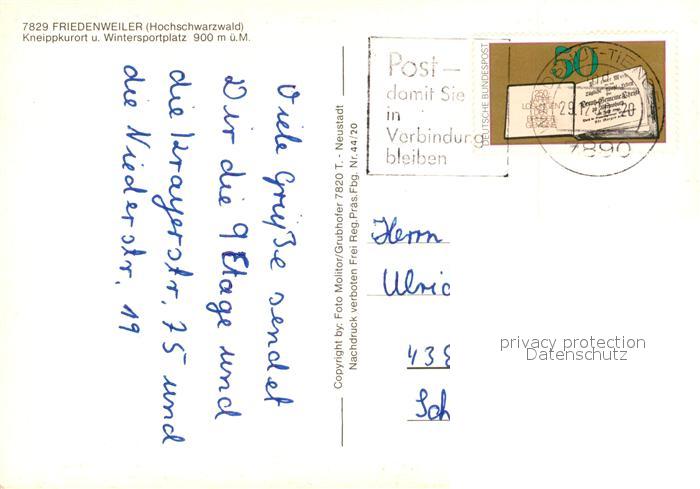 7829 FRIEDENWEILER (Hochschwarzwald)
Kneippkurort u. Wintersportplatz 900 m ü.M.
Viele Grüße sendet
Dir die 9 Etage und
die Krayerstr. 75 und
die Niederstr. 19
Copyright by: Foto Molitor/Grubhofer 7820 T. - Neustadt
Nachdruck verboten Frei Reg.Präs.Fbg. Nr.44/20
Post –
damit Sie
in
Verbindung
bleiben
DEUTSCHE BUNDESPOST
50
250
JAHRE
LOSUNGEN
DER
BRÜDER
GEMEINE
7890
Herrn
Ulric
435
Sch
privacy protection
Datenschutz